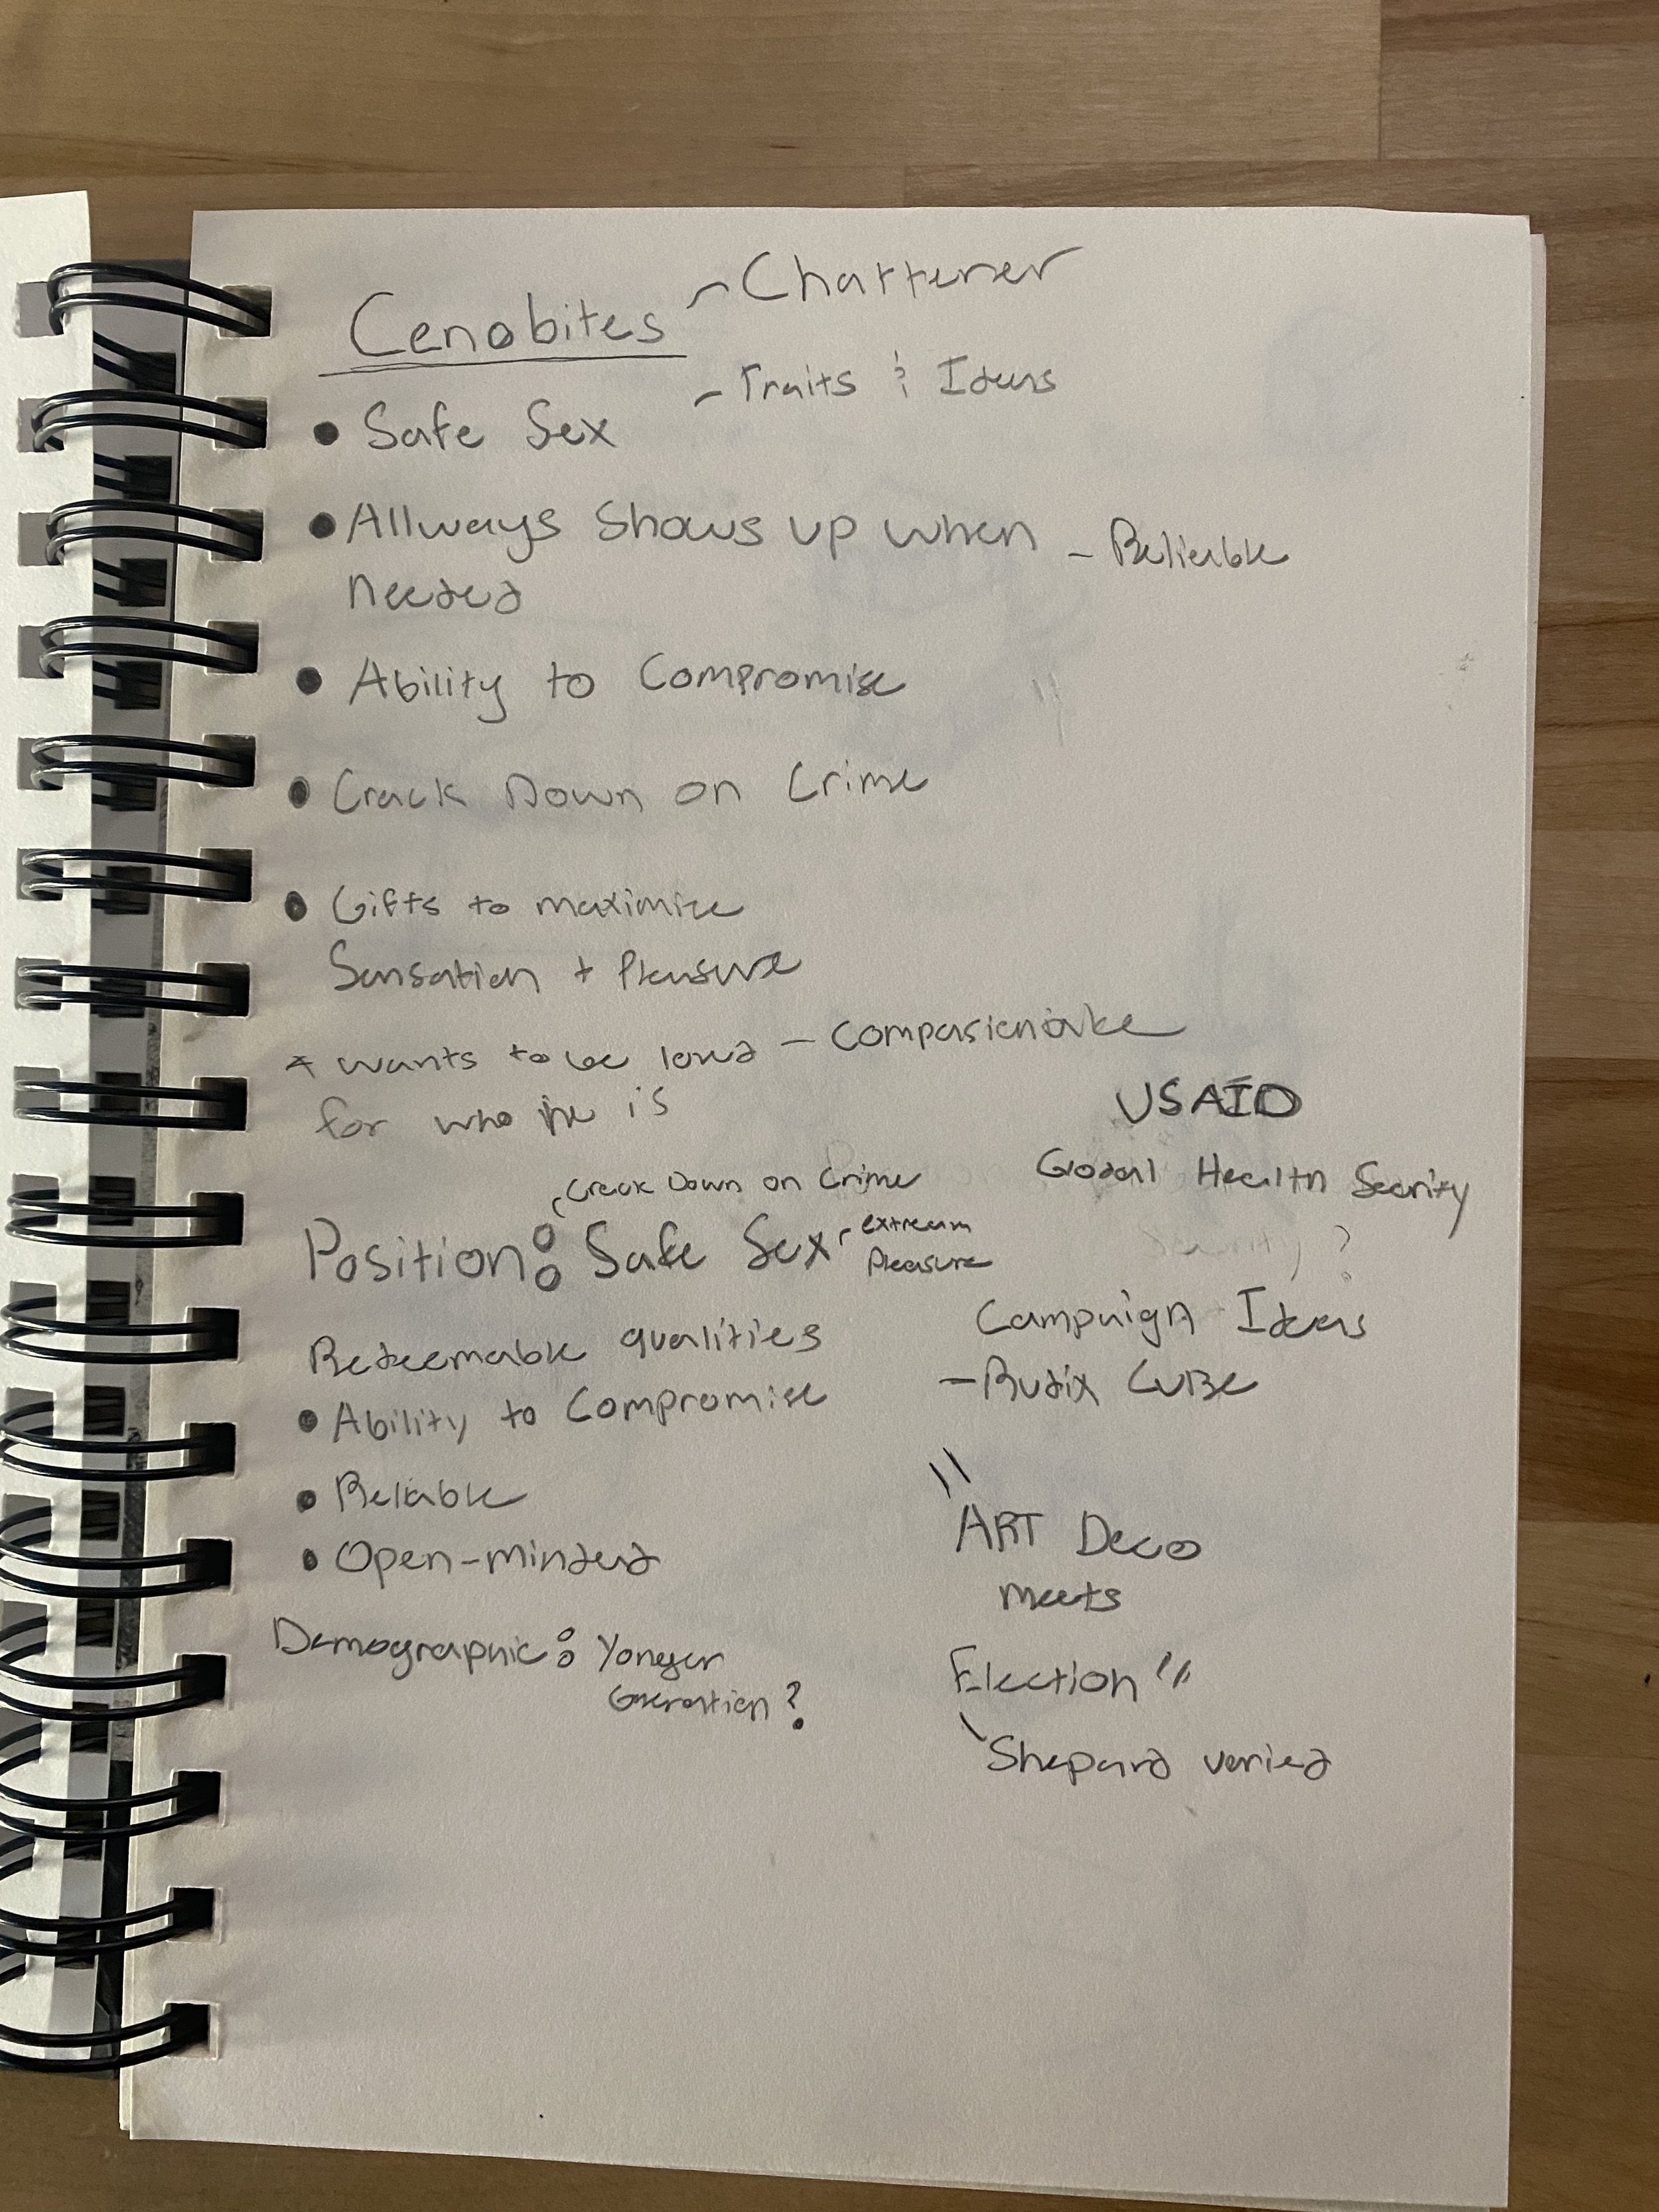 Cenobites
- Chatterer
- Traits & Ideas
• Safe Sex
• Allways Shows up when
needed
- Relieable
• Ability to Compromise
• Crack Down on Crime
• Gifts to maximize
Sensation + Pleasure
* wants to be loved - Compasionate
for who he is
USAID
Gobal Health Security
Security ?
Crack Down on Crime
Position: Safe Sex - extream
Pleasure
Redeemable qualities
• Ability to Compromise
• Reliable
• Open-minded
Demographic: Yonger
Generation?
Campaign Ideas
- Rudix CUBE
"ART Deco
meets
Election"
Shepard varied